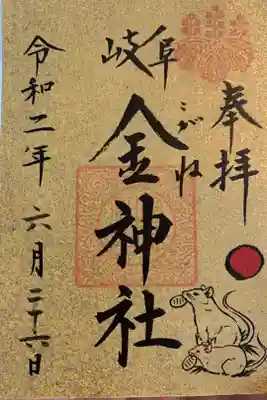 奉拝
岐阜
金神社
こがね
令和二年六月二十六日